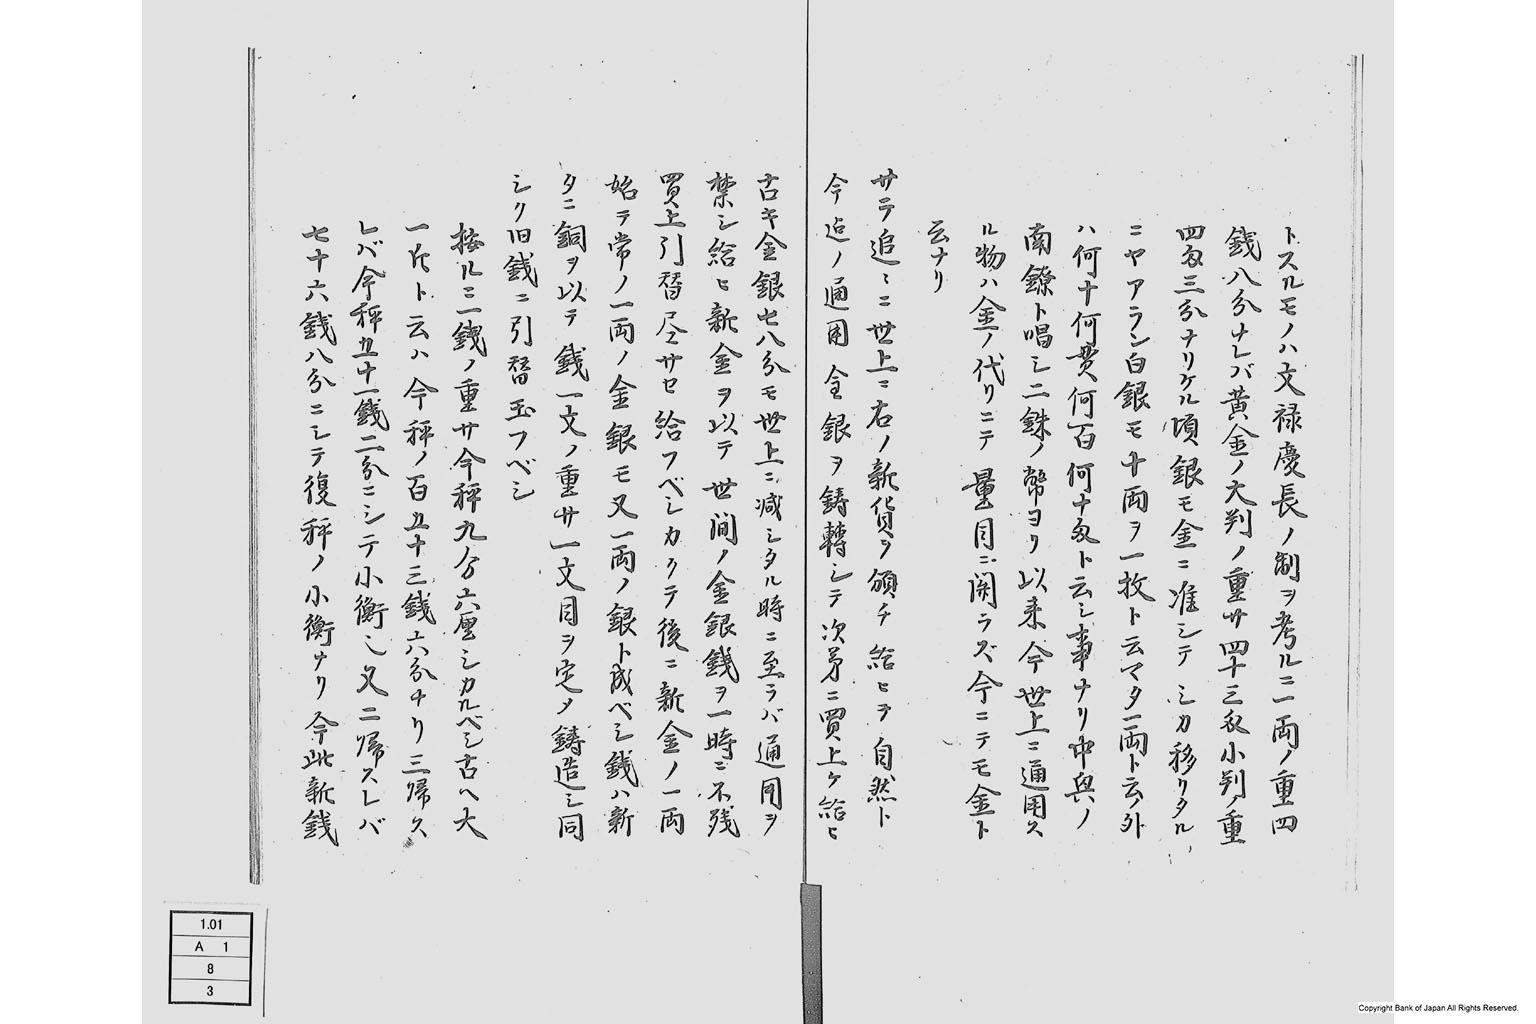 トスルモノハ文禄慶長ノ制ヲ考ルニ一両ノ重四
銭八分ナレバ黄金ノ大判ノ重サ四十三匁小判ノ重
四匁三分ナリケル頃銀モ金ニ准シテシカ移リタル
ニヤアラン白銀モ十両ヲ一枚ト云マタ一両ト云ノ外
ハ何十何貫何百何十匁ト云シ事ナリ中興ノ
南鐐ト唱シ二銖ノ幣ヨリ以来今世上ニ通用ス
ル物ハ金ノ代リニテ量目ニ関ラズ今ニテモ金ト
云ナリ
サテ追々ニ世上ニ右ノ新貨ヲ頒チ給ヒテ自然ト
今迠ノ通用金銀ヲ鋳轉シテ次第ニ買上ケ給ヒ
古キ金銀七八分モ世上ニ減シタル時ニ至ラバ通用ヲ
禁シ給ヒ新金ヲ以テ世間ノ金銀銭ヲ一時ニ不残
買上引替尽サセ給フベシカクテ後ニ新金ノ一両
始テ常ノ一両ノ金銀モ又一両ノ銀ト成ベシ銭ハ新
タニ銅ヲ以テ銭一文ノ重サ一文目ヲ定メ鋳造シ同
シク旧銭ニ引替玉フベシ
按ルニ一銭ノ重サ今秤九分六厘シカルベシ古ヘ大
一斤ト云ハ今秤ノ百五十三銭六分ナリ三帰ス
レバ今秤五十一銭二分ニシテ小衡也又二帰スレバ
七十六銭八分ニシテ復秤ノ小衡ナリ今此新銭
1.01
A 1
8
3
Copyright Bank of Japan All Rights Reserved.